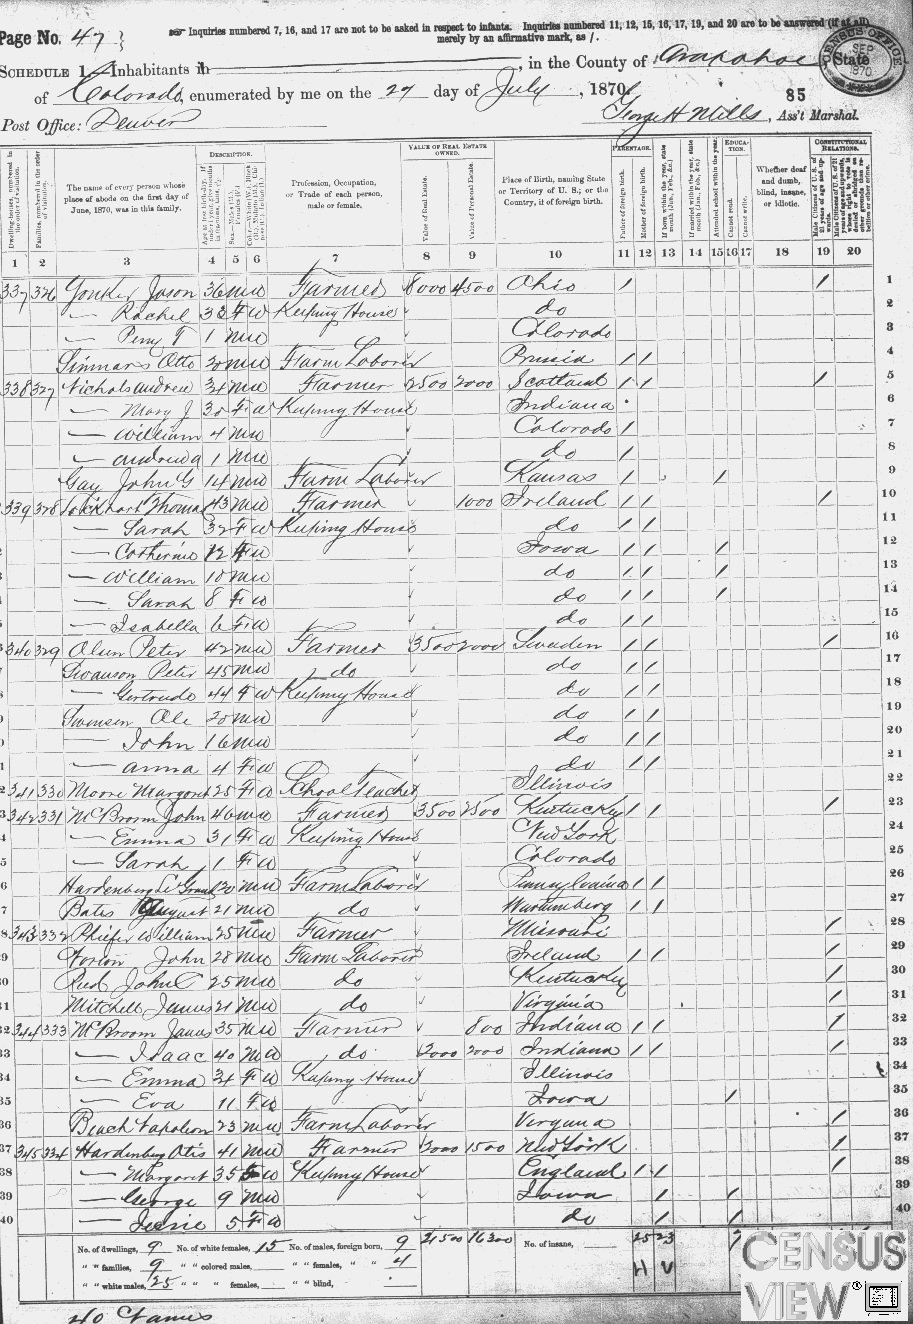 Page No. 47
Inquiries numbered 7, 16, and 17 are not to be asked in respect to infants. Inquiries numbered 11, 12, 15, 16, 17, 19, and 20 are to be answered (if at all)
merely by an affirmative mark, as /.
SCHEDULE 1.—Inhabitants in ———, in the County of Arapahoe, State
of Colorado, enumerated by me on the 27 day of July, 1870.
CENSUS OFFICE SEP 1870
85
Post Office: Denver
George H Mills, Ass't Marshal.
Dwelling-houses, numbered in the order of visitation.
Families, numbered in the order of visitation.
The name of every person whose place of abode on the first day of June, 1870, was in this family.
DESCRIPTION.
Profession, Occupation, or Trade of each person, male or female.
VALUE OF REAL ESTATE OWNED.
Value of Real Estate.
Value of Personal Estate.
Place of Birth, naming State or Territory of U. S.; or the Country, if of foreign birth.
PARENTAGE.
Father of foreign birth.
Mother of foreign birth.
If born within the year, state month (Jan., Feb., &c.)
If married within the year, state month (Jan., Feb., &c.)
Attended school within the year.
EDUCATION.
Cannot read.
Cannot write.
Whether deaf and dumb, blind, insane, or idiotic.
CONSTITUTIONAL RELATIONS.
1 2 3 4 5 6 7 8 9 10 11 12 13 14 15 16 17 18 19 20
337 326 Yonker Jason 36 M W Farmer 8000 4500 Ohio / / 1
— Rachel 33 F W Keeping House do 2
— Perry T 1 M W Colorado 3
Otto 20 M W Farm Laborer Prussia / / 4
338 327 Nichols Andrew 34 M W Farmer 2500 2000 Scotland / / / 5
— Mary J 30 F W Keeping House Indiana 6
— William 4 M W Colorado / 7
— Andrew 1 M W do / 8
Gay John G 14 M W Farm Laborer Kansas / / 9
339 328 Lockhart Thomas 43 M W Farmer 1000 Ireland / / / 10
— Sarah 32 F W Keeping House do / / 11
— Catherine 12 F W Iowa / / / 12
— William 10 M W do / / / 13
— Sarah 8 F W do / / / 14
— Isabella 6 F W do / / 15
340 329 Olsen Peter 42 M W Farmer 3500 2000 Sweden / / / 16
Swanson Peter 45 M W do do / / 17
— Gertrude 44 F W Keeping House do / / 18
Swensen Ole 20 M W do / / 19
— John 16 M W do / / 20
— Anna 4 F W do / / 21
341 330 Moore Margaret 25 F W School Teacher Illinois 22
342 331 McBroom John 46 M W Farmer 3500 2500 Kentucky / / / 23
— Emma 31 F W Keeping House New York 24
— Sarah 1 F W Colorado 25
Hardenberg Le Grand 20 M W Farm Laborer Pennsylvania / / 26
Bates August 21 M W do Wurtemberg / / 27
343 332 William 25 M W Farmer Missouri / 28
John 28 M W Farm Laborer Ireland / / / 29
John C 25 M W do Kentucky / 30
Mitchell James 21 M W do Virginia / 31
344 333 McBroom James 35 M W Farmer 800 Indiana / / / 32
— Isaac 40 M W do 3000 2000 Indiana / / / 33
— Emma 34 F W Keeping House Illinois 34
— Eva 11 F W Iowa / 35
Beach Napoleon 23 M W Farm Laborer Virginia / 36
345 334 Hardenberg Otis 41 M W Farmer 3000 1500 New York / 37
— Margaret 35 F W Keeping House England / / / 38
— George 9 M W Iowa / / 39
— Jesse 5 F W do / / 40
No. of dwellings, 9 No. of white females, 15 No. of males, foreign born, 9 21500 16300 No. of insane, ——— 25 23
" " families, 9 " " colored males, " " females, " " 4
" " white males, 25 " " " females, " " blind,
40 Names
CENSUS
VIEW®